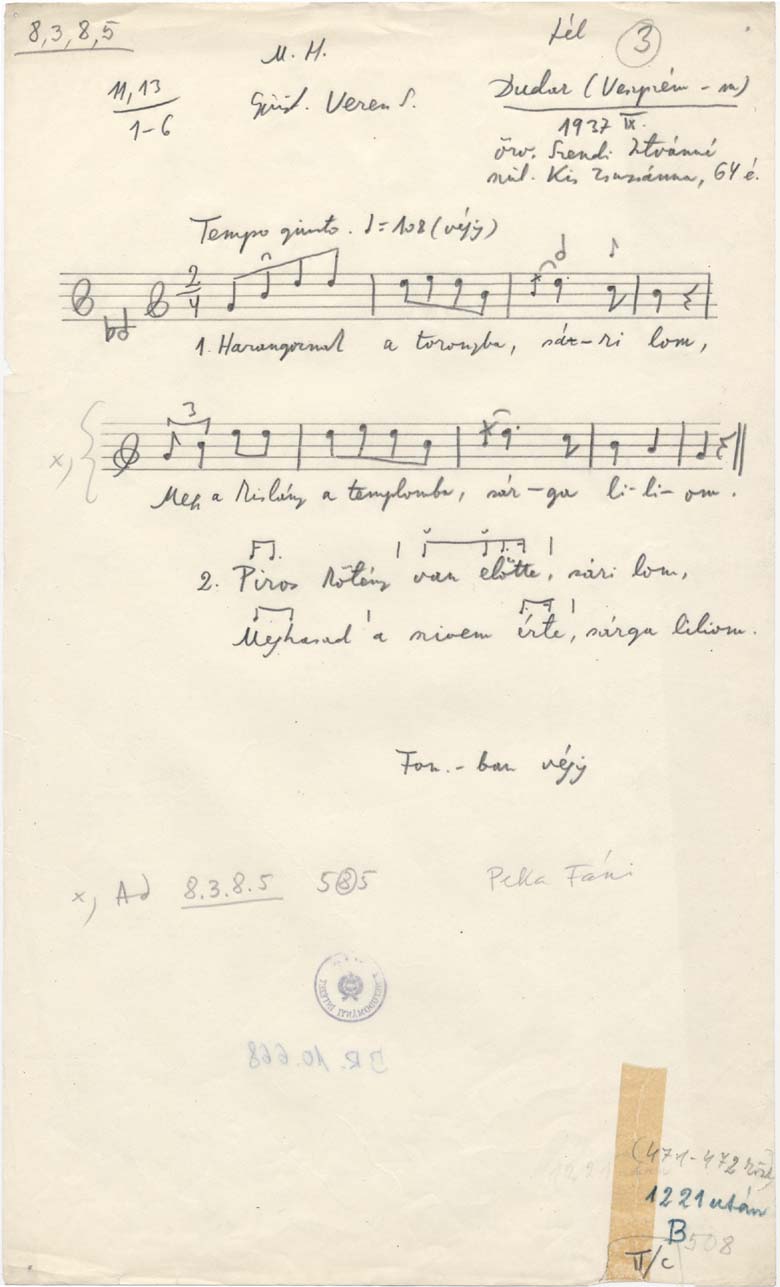 8,3,8,5
M. H.
tél
3
11,13
1-6
Gyüjt. Veress S.
Dudar (Veszprém-m)
1937 IX.
özv. Szendi Istvánné
szül. Kis Zsuzsánna, 64 é.
Tempo giusto. ♩=108 (végig)
2/4
1. Harangoznak a toronyba, sáz-ri lom,
3
x,
Meg a kislány a templomba, sár-ga li-li-om.
2. Piros kötény van előtte, sári lom,
Meghasad a szivem érte, sárga liliom.
Fon.-ban végig
x, Ad 8.3.8.5 5 8 5
Peka Fáni
BR. 10.668
(471-472
1221 után
B
508
II/c